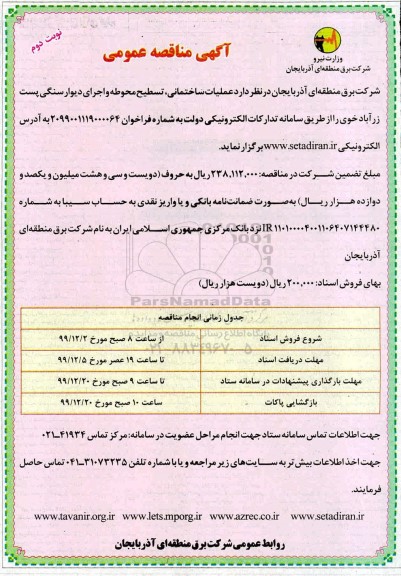 وزارت نیرو
شرکت برق منطقه‌ای آذربایجان
آگهی مناقصه عمومی
نوبت دوم
شرکت برق منطقه‌ای آذربایجان در نظر دارد عملیات ساختمانی، تسطیح محوطه و اجرای دیوار سنگی پست
زرآباد خوی را از طریق سامانه تدارکات الکترونیکی دولت به شماره فراخوان ۲۰۹۹۰۰۱۱۱۹۰۰۰۰۶۴ به آدرس
الکترونیکی www.setadiran.ir برگزار نماید.
مبلغ تضمین شرکت در مناقصه: ۲۳۸,۱۱۲,۰۰۰ ریال به حروف (دویست و سی و هشت میلیون و یکصد و
دوازده هزار ریال) به صورت ضمانت‌نامه بانکی و یا واریز نقدی به حساب سیبا به شماره
IR ۱۱۰۱۰۰۰۰۴۰۰۱۱۰۶۴۰۷۱۴۴۴۸۰ نزد بانک مرکزی جمهوری اسلامی ایران به نام شرکت برق منطقه‌ای
آذربایجان
بهای فروش اسناد: ۲۰۰,۰۰۰ ریال (دویست هزار ریال)
ParsNamadData
جدول زمانی انجام مناقصه
شروع فروش اسناد از ساعت ۸ صبح مورخ ۹۹/۱۲/۲
مهلت دریافت اسناد تا ساعت ۱۹ عصر مورخ ۹۹/۱۲/۵
مهلت بارگذاری پیشنهادات در سامانه ستاد تا ساعت ۹ صبح مورخ ۹۹/۱۲/۲۰
بازگشایی پاکات ساعت ۱۰ صبح مورخ ۹۹/۱۲/۲۰
جهت اطلاعات تماس سامانه ستاد جهت انجام مراحل عضویت در سامانه: مرکز تماس ۴۱۹۳۴-۰۲۱
جهت اخذ اطلاعات بیش‌تر به سایت‌های زیر مراجعه و یا با شماره تلفن ۳۱۰۷۳۲۳۵-۰۴۱ تماس حاصل
فرمایند.
www.tavanir.org.ir www.lets.mporg.ir www.azrec.co.ir www.setadiran.ir
روابط عمومی شرکت برق منطقه‌ای آذربایجان